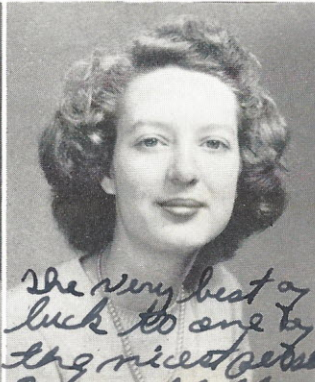 The very best of
luck to one of
the nicest